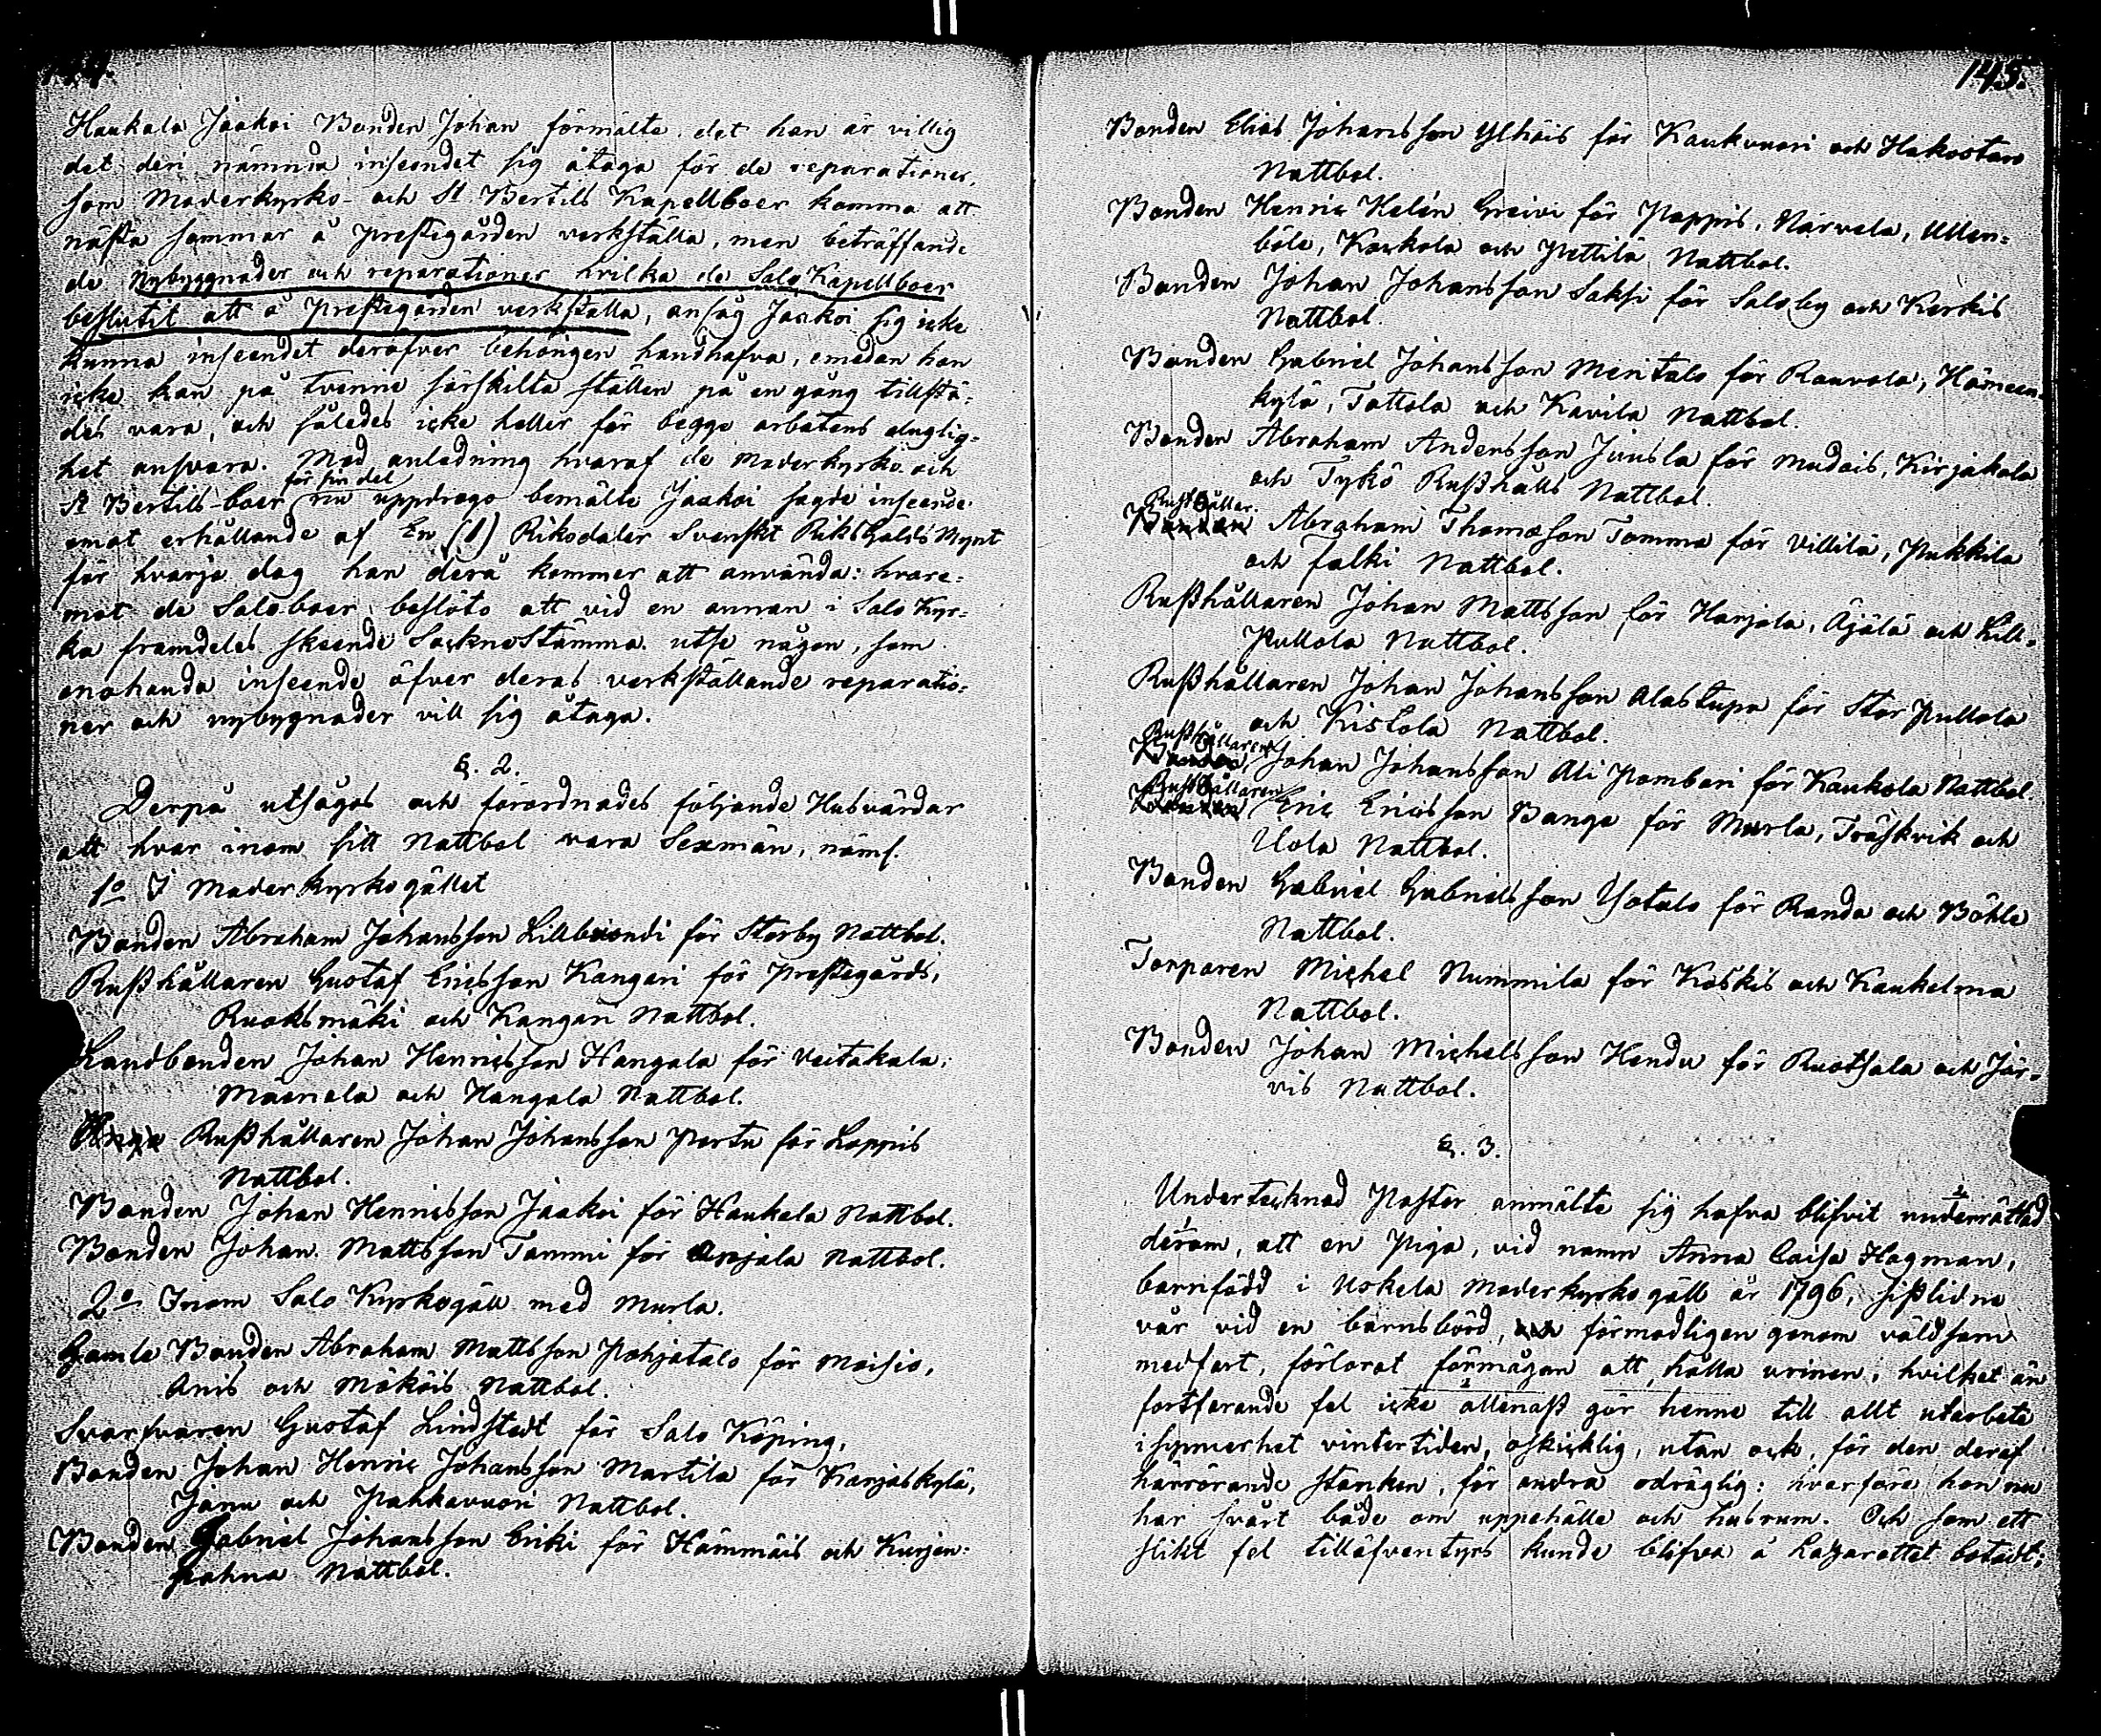 144.
Haukala Jaakoi Bonden Johan förmälte det han är villig
det den nämnda inseendet sig åtaga för de reparationer,
som Moderkyrko- och St Bertils Kapellboer komma att
nästa sommar å Prestegården verkställa, men beträffande
de Nybyggnader och reparationer hvilka de Salo Kapellboer
beslutit att å Prestegården verkställa, ansåg Jaakoi sig icke
kunna inseendet deröfver behörigen handhafva, emedan han
icke kan på tvenne särskilta ställen på en gång tillstä-
des vara, och således icke heller för begge arbetens duglig-
het ansvara. Med anledning hvaraf de Moderkyrko och
St Bertils-boer för sin del nu uppdrogo bemälte Jaakoi sagde inseende
emot erhållande af En (1) Riksdaler Svenskt Riks Gälds Mynt
för hvarje dag han derå kommer att använda: hvare-
mot de Saloboer beslöto att vid en annan i Salo Kyr-
ka framdeles skeende SocknoStämma utse någon, som
enahanda inseende öfver deras verkställande reparatio-
ner och nybygnader vill sig åtaga.
§. 2.
Derpå utsågos och förordnades följande Husvärdar
att hvar inom sitt Nattbol vara Sexmän, näml.
1o I Moderkyrkogället
Bonden Abraham Johansson Lillbuondi för Storby Nattbol.
Rusthållaren Gustaf Ericsson Kangari för Prestegårds,
Ruoksmäki och Kangari Nattbol.
Landbonden Johan Henricsson Hangala för Veitakala,
Määriala och Hangala Nattbol.
Rusthållaren Johan Johansson Pertu för Loppis
Nattbol.
Bonden Johan Henricsson Jaakoi för Haukala Nattbol.
Bonden Johan Mattsson Tammi för Anjala Nattbol.
2o Inom Salo Kyrkogäll med Murla.
Gamle Bonden Abraham Mattsson Pohjatalo för Moisio,
Anis och Mököis Nattbol.
Svarfvaren Gustaf Lindstedt för Salo Köping,
Bonden Johan Henric Johansson Martila för Karjaskylä,
Jänu och Pahkavuori Nattbol.
Bonden Gabriel Johansson Eriki för Hämmäis och Kurjen-
pahna Nattbol.
145.
Bonden Elias Johansson Ylhäis för Kaukvuori och Hakostaro
Nattbol.
Bonden Henric Helén Greivi för Pappis, Närvela, Ullen-
böle, Kaukola och Pettilä Nattbol.
Bonden Johan Johansson Saksi för Saloby och Kerkis
Nattbol.
Bonden Gabriel Johansson Meritalo för Rauvola, Hämeen-
kylä, Tottola och Kavila Nattbol.
Bonden Abraham Andersson Juusla för Mudais, Kirjakala
och Tykö Rusthålls Nattbol.
Rusthållar. Abraham Thomasson Tomma för Villilä, Pukkila
och Falki Nattbol.
Rusthållaren Johan Mattsson för Hanjala, Äjälä och Lill-
Pullola Nattbol.
Rusthållaren Johan Johansson Alastupa för Stor Pullola
och Kistola Nattbol.
Rusthållaren Johan Johansson Ali Pomberi för Kaukola Nattbol.
Rusthållaren Eric Ericsson Bange för Murla, Träskvik och
Uola Nattbol.
Bonden Gabriel Gabrielsson Ysotalo för Randa och Böhle
Nattbol.
Torparen Michel Nummila för Koskis och Kaukelma
Nattbol.
Bonden Johan Michelsson Hendu för Ruotsala och Jär-
vis Nattbol.
§. 3.
Undertecknad Pastor anmälte sig hafva blifvit underrättad
derom, att en Piga, vid namn Anna Caisa Hagman,
barnfödd i Uskela Moderkyrko gäll år 1796, sistlidne
vår vid en barnsbörd, förmodligen genom våldsam
medfart, förlorat förmågan att hålla urinen; hvilket än
fortfarande fel icke allenast gör henne till allt utarbete
isynnerhet vintertiden, oskicklig, utan ock, för den deraf
härrörande stanken, för andra odräglig: hvarföre hon nu
har svårt både om uppehälle och husrum. Och som ett
slikt fel tilläfventyrs kunde blifva å Lazarettet botadt;